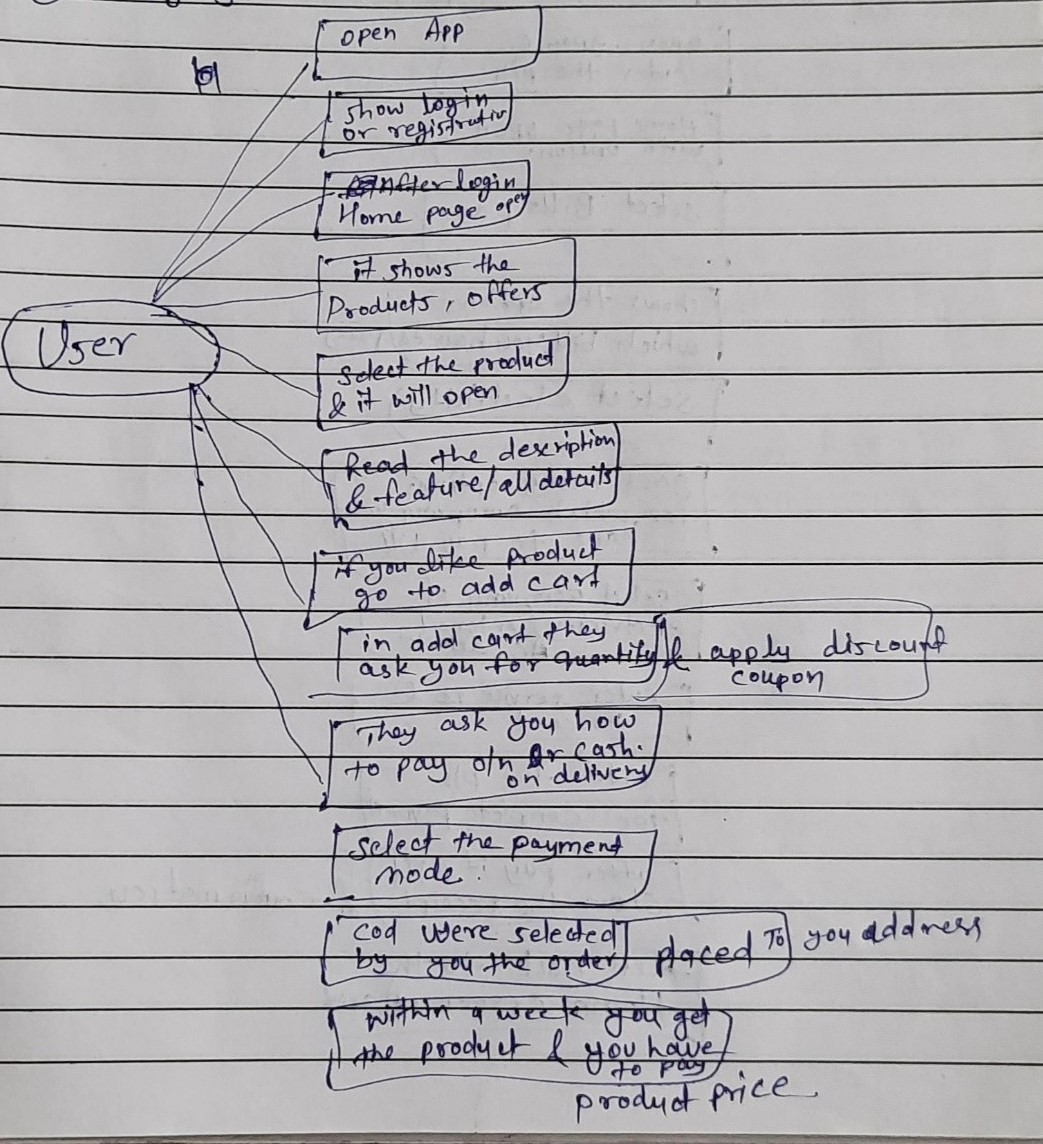 open App
show login
or registration
After login
Home page open
it shows the
Products, offers
User
Select the product
& it will open
Read the description
& feature/all details
if you like product
go to add cart
in add cart they
ask you for quantity & apply discount
coupon
They ask you how
to pay o/n or cash.
on delivery
select the payment
mode.
cod were selected
by you the order placed To you address
within a week you get
the product & you have
to pay
product price